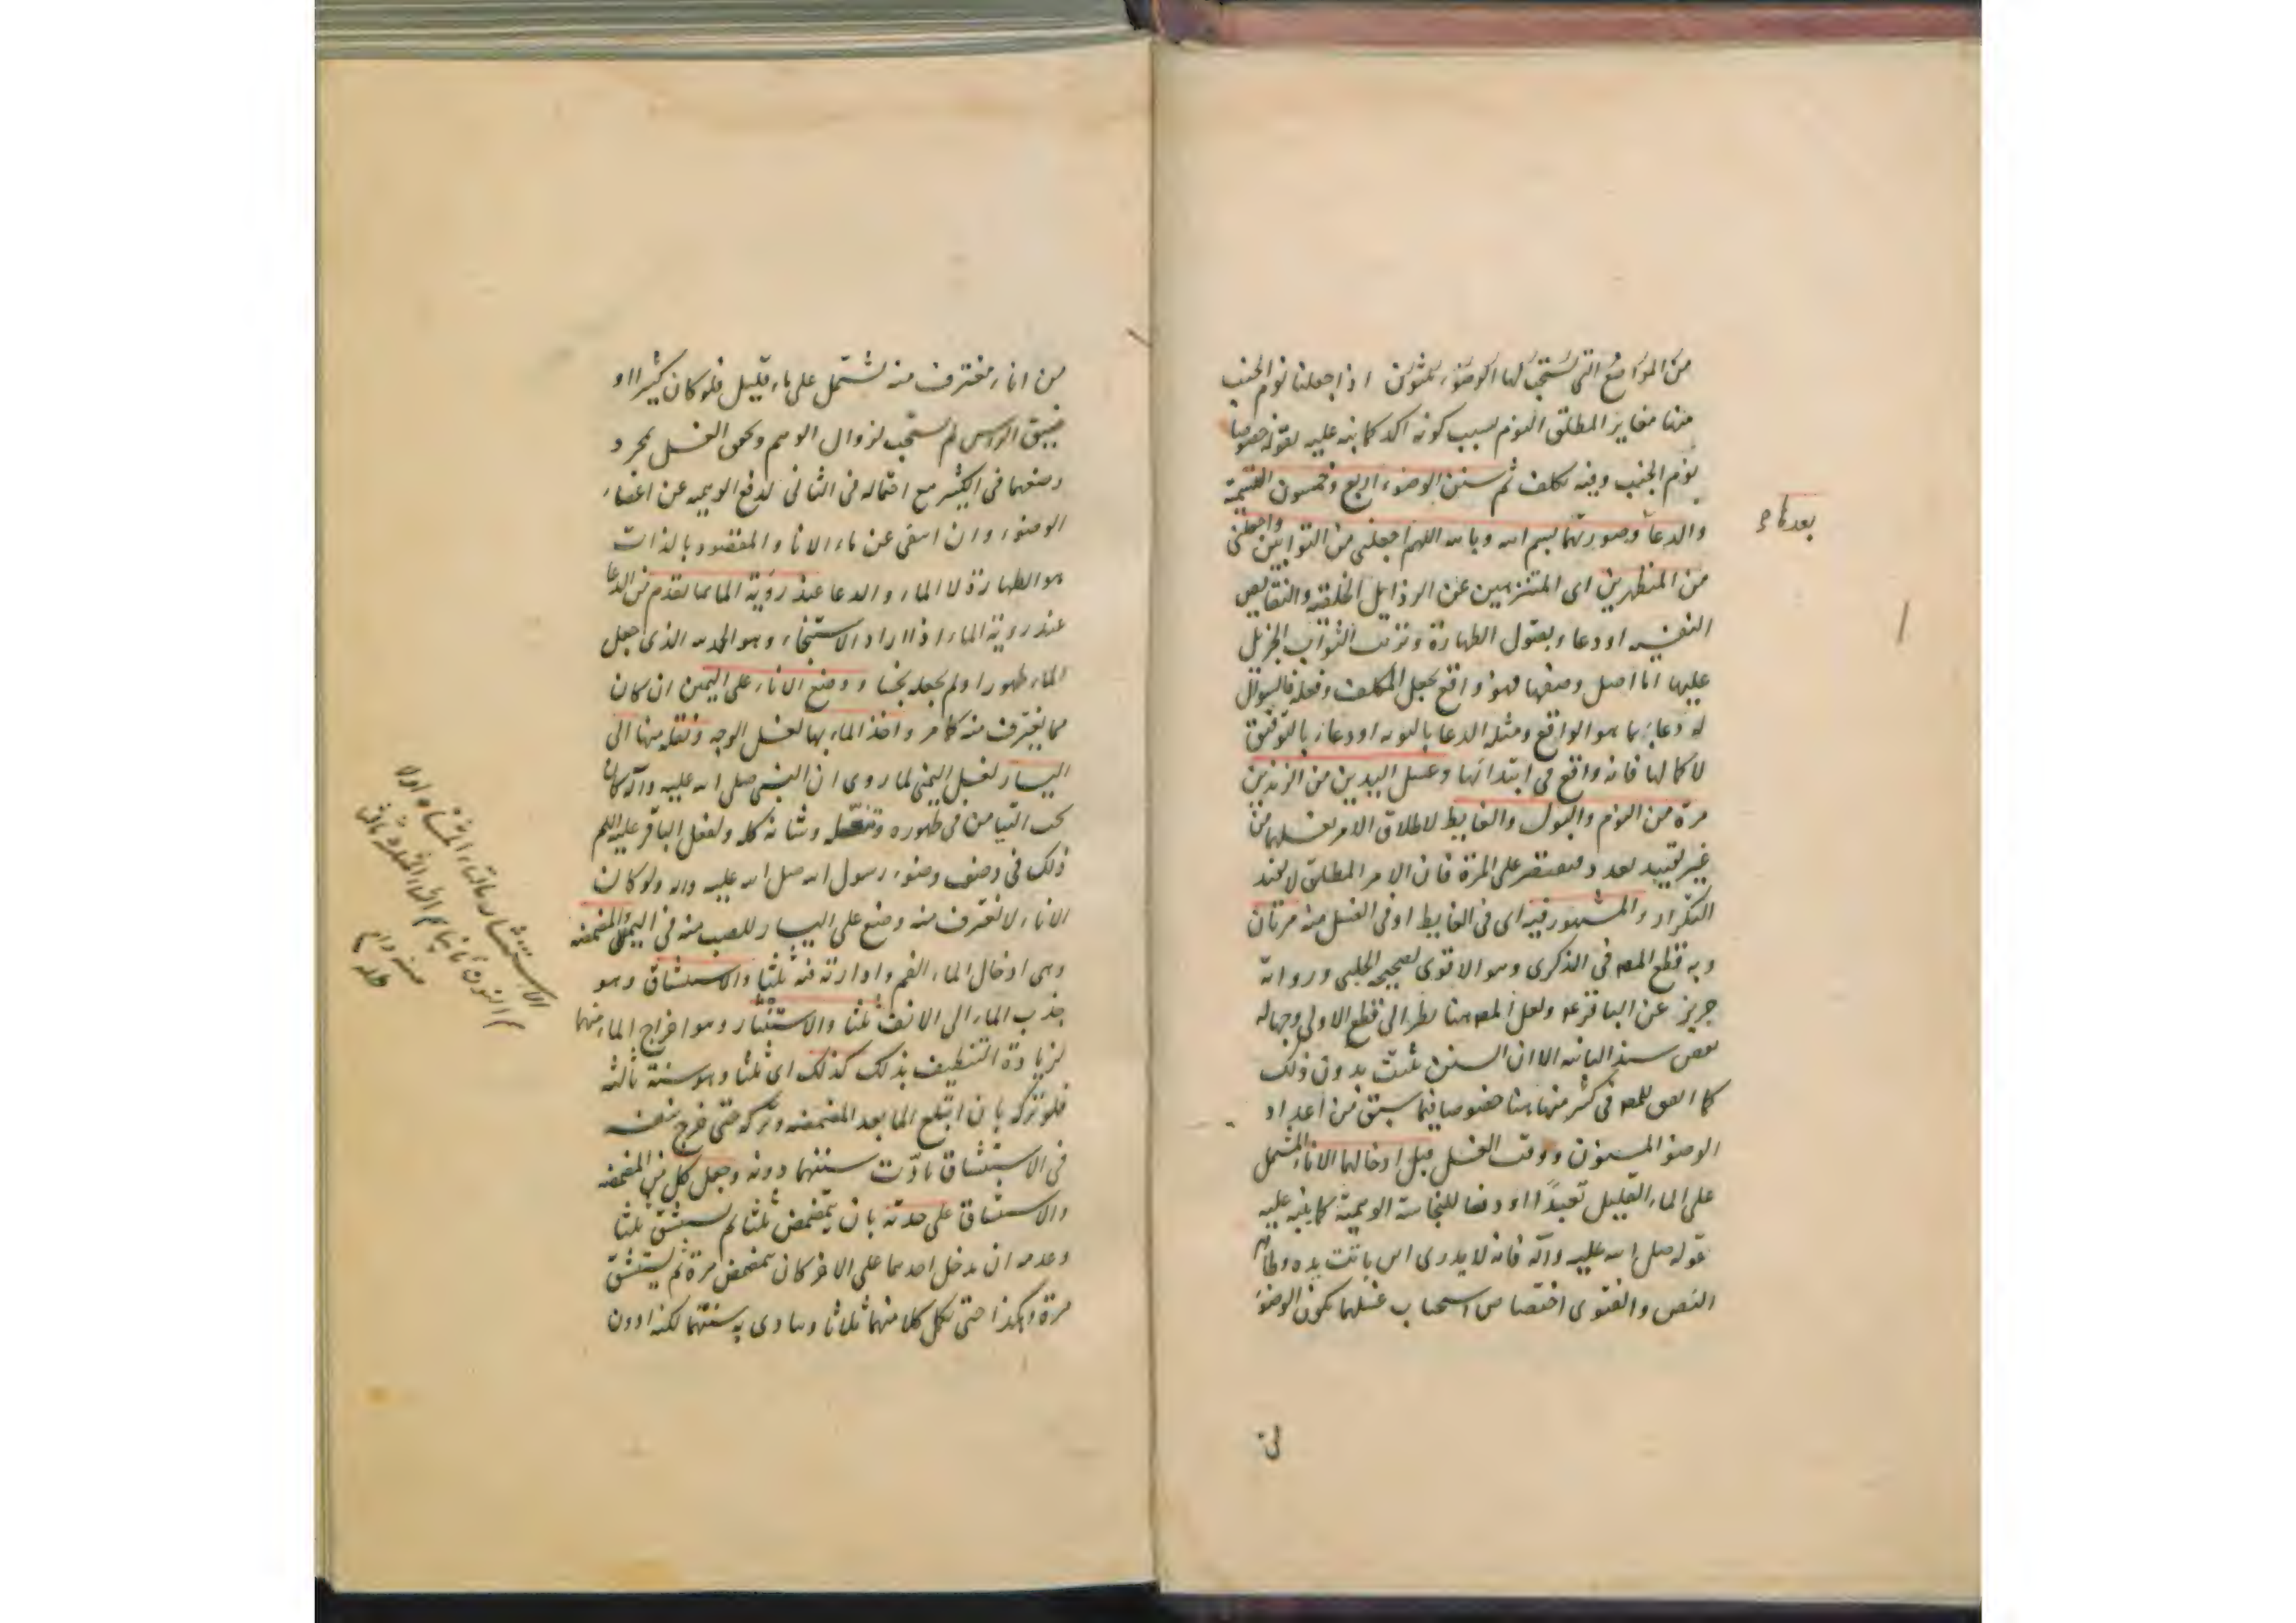 من المواضع التى يستحب لها الوضوء ثلثون اذا جعلنا نوم الجنب
منها مغاير المطلق النوم بسبب كونه اكد كما نبه عليه بقوله خصوصا
نوم الجنب وفيه تكلف ثم سنن الوضوء اربع وخمسون التسمية
والدعا وصورتهما بسم الله وبالله اللهم اجعلنى من التوابين واجعلنى
من المتطهرين اى المتنزهين عن الرذايل الخلقية والنقايص
النفسيه او دعاء بقبول الطهارة وترتب الثواب الجزيل
عليها اما اصل وصفها فهو واقع بجعل المكلف وفعله فالسؤال
له دعاء بما هو الواقع ومثله الدعا بالتوبه او دعاء بالتوفيق
لاكمالها فانه واقع فى ابتدائها وغسل اليدين من الزندين
مرة من النوم والبول والغايط لاطلاق الامر بغسلهما من
غير تقييد بعدد فيقتصر على المرة فان الامر المطلق لا يفيد
التكرار والمشهور فيه اى فى الغايط او فى الغسل منه مرتان
وبه قطع المصه فى الذكرى وهو الاقوى لصحيح الحلبى ورواية
حريز عن الباقر ع ولعل المصه هنا نظر الى قطع الاولى وجهاله
بعض سند الثانيه الا ان السنن تثبت بدون ذلك
كما اتفق للمصه فى كثير منها هنا خصوصا فيما سبق من اعداد
الوضو المسنون ووقت الغسل قبل ادخالهما الاناء المشتمل
على الماء القليل تعبدًا او دفعا للنجاسة الوهمية كما ينبه عليه
قوله صلى الله عليه وآله فانه لا يدرى اين باتت يده وظاهر
النص والفتوى اختصاص استحباب غسلهما بكون الوضوء
من اناء مغترف منه يشتمل على ماء قليل فلو كان كثيرا او
ضيق الراس لم يستحب لزوال الوهم وتحقق الغسل بمجرد
وضعهما فى الكثير مع احتماله فى الثانى لدفع الوهميه عن اعضاء
الوضوء وان انتفى عن ماء الاناء والمقصود بالذات
هو الطهارة لا الماء والدعا عند رؤية الما بما تقدم من الدعا
عند روية الماء اذا اراد الاستنجاء وهو الحمد لله الذى جعل
الماء طهورا ولم يجعله نجسا ووضع الاناء على اليمين ان كان
مما يغترف منه كما مر واخذ الماء بها لغسل الوجه ونقله منها الى
اليسار لغسل اليمنى لما روى ان النبى صلى الله عليه وآله كان
يحب التيامن فى طهوره وتنعله وشانه كله ولفعل الباقر عليه السلم
ذلك فى وصف وضوء رسول الله صلى الله عليه واله ولو كان
الاناء لا يغترف منه وضع على اليسار للصب منه فى اليمنى والمضمضه
وهى ادخال الماء الفم وادارته فيه ثلثا والاستنشاق وهو
جذب الماء الى الانف ثلثا والاستنثار وهو اخراج الماء منهما
لزيادة التنظيف بذلك كذلك اى ثلثا وهو سنة ثالثه
فلو تركه بان ابتلع الما بعد المضمضه وتركه حتى خرج بنفسه
فى الاستنشاق تادّت سنتهما دونه وجعل كل من المضمضه
والاستنشاق على حدته بان يتمضمض ثلثا ثم يستنشق ثلثا
وعدمه ان يدخل احدهما على الاخر كان يتمضمض مرة ثم يستنشق
مرة وهكذا حتى يكمل كلا منهما ثلاثا ويتادى به سنتهما لكنه ادون